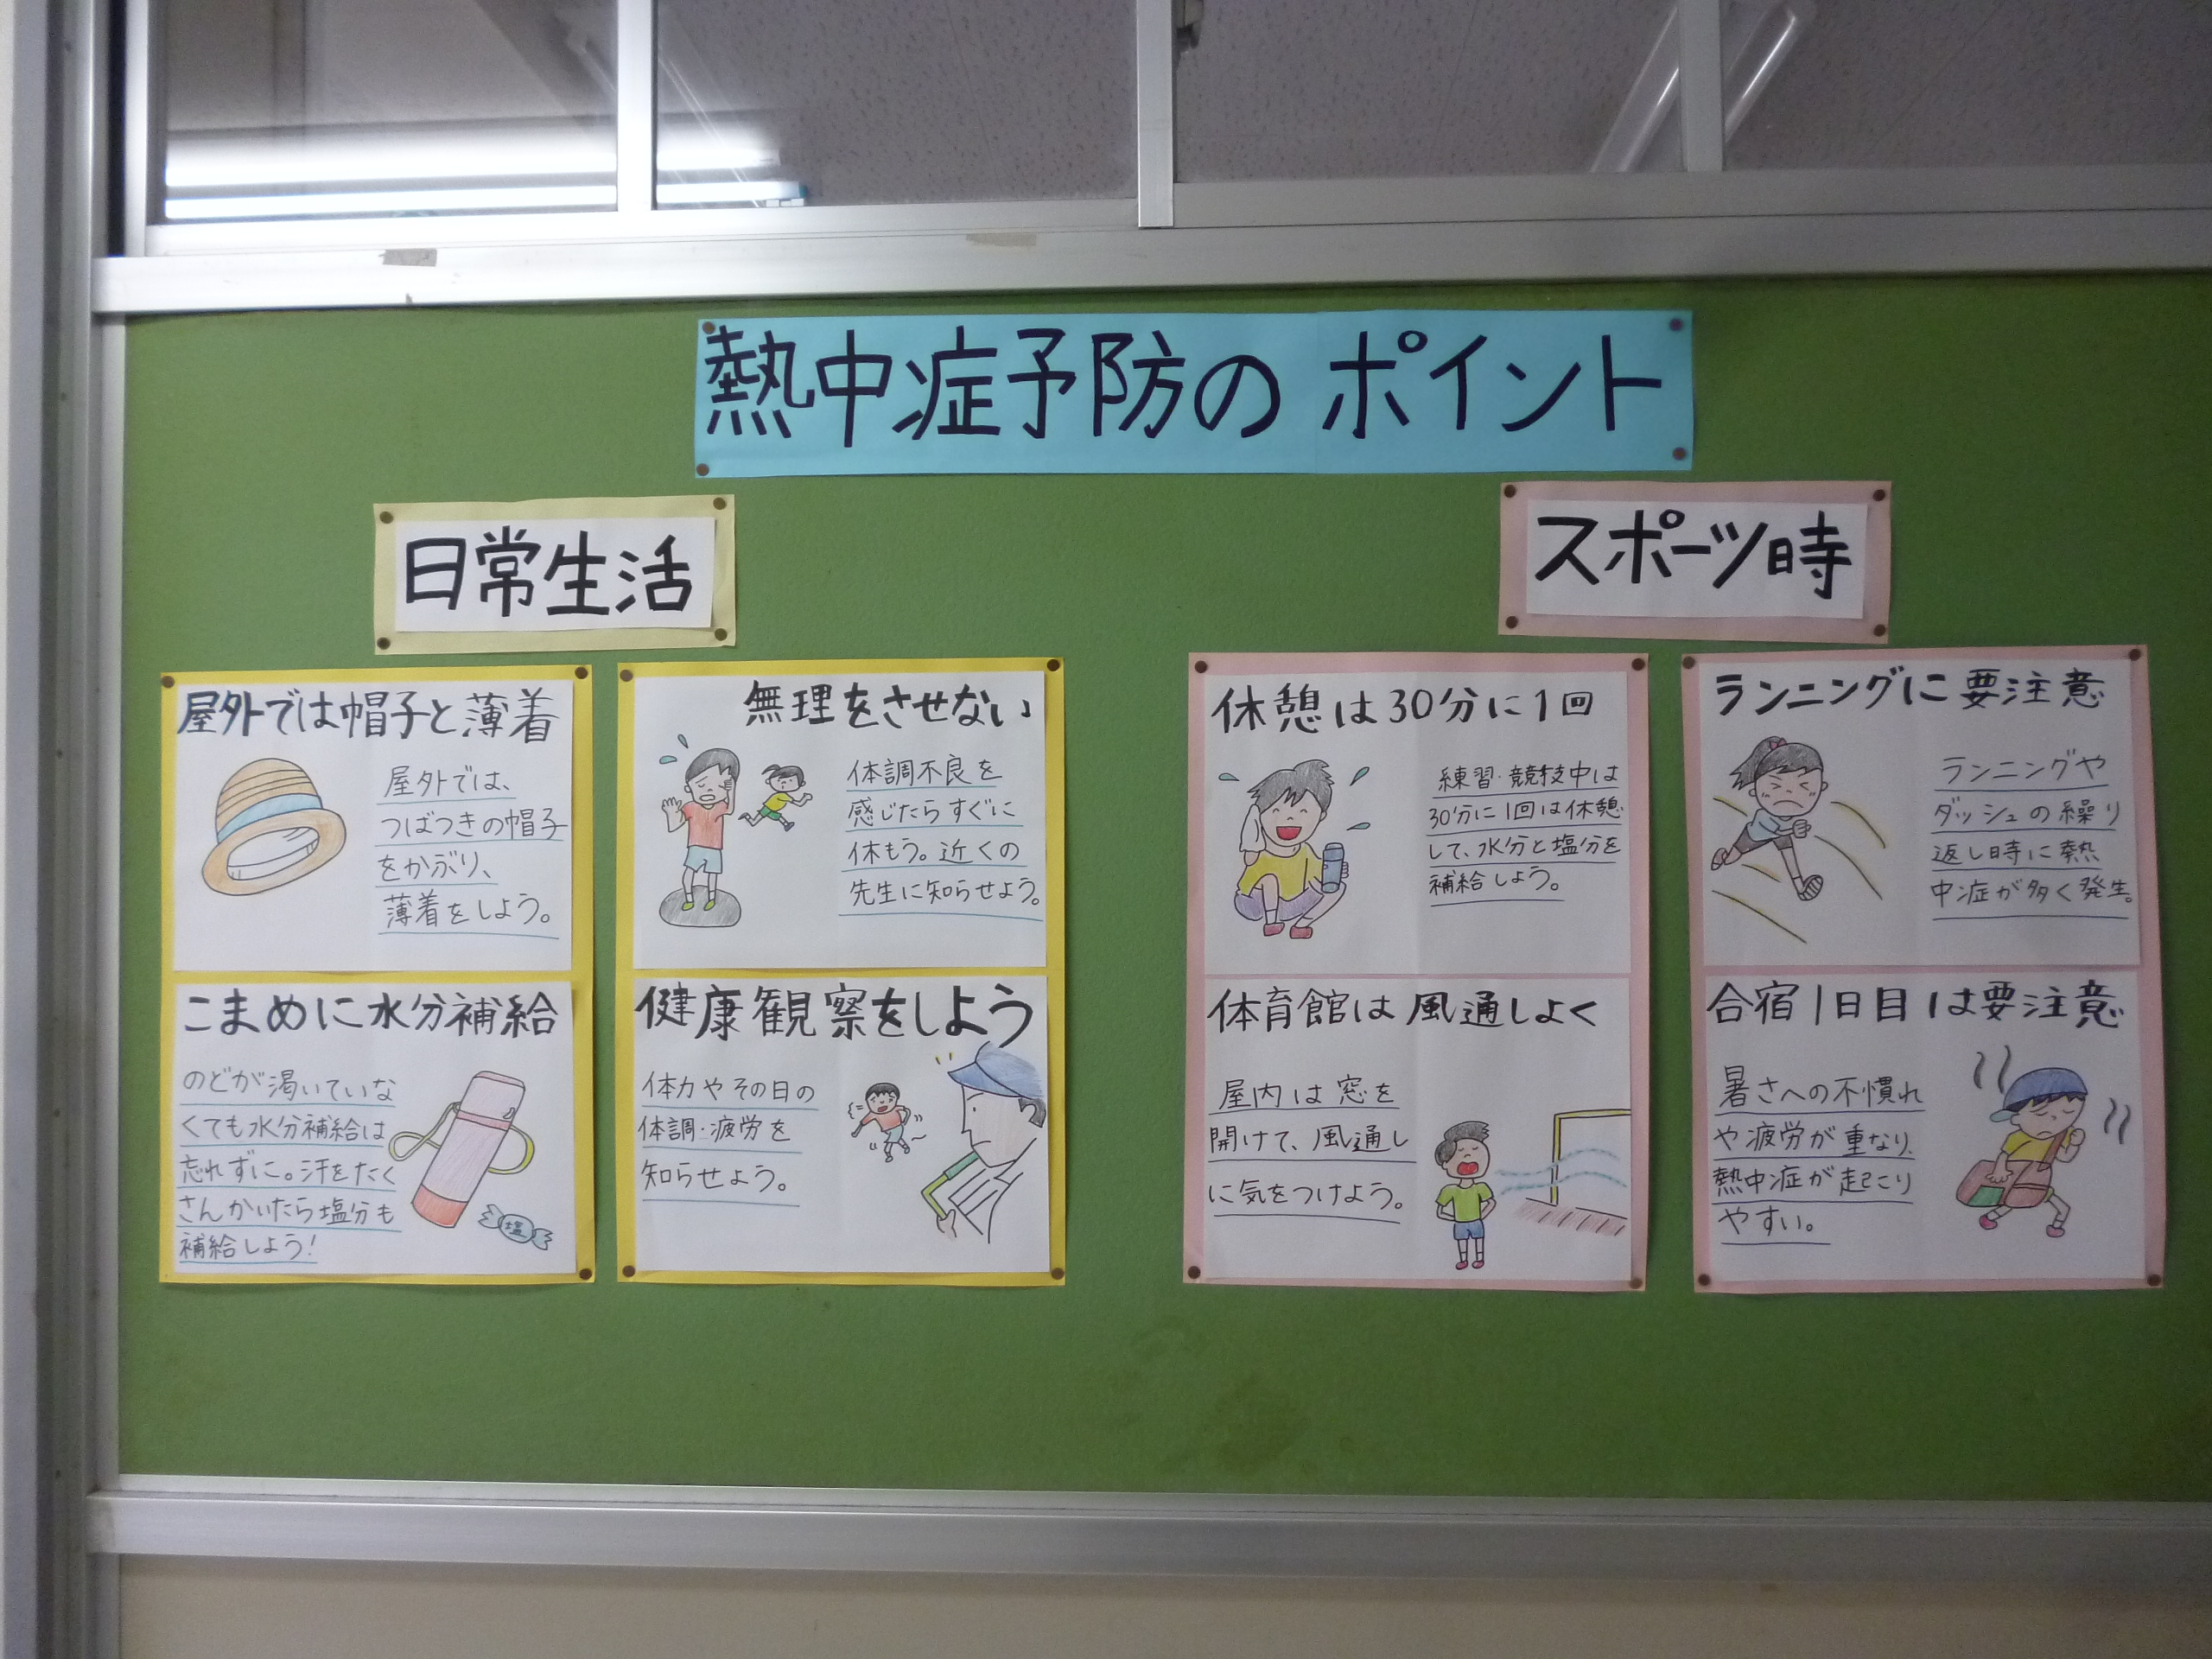 熱中症予防のポイント
日常生活
屋外では帽子と薄着
屋外では、
つばつきの帽子
をかぶり、
薄着をしよう。
こまめに水分補給
のどが渇いていな
くても水分補給は
忘れずに。汗をたく
さんかいたら塩分も
補給しよう!
塩
無理をさせない
体調不良を
感じたらすぐに
休もう。近くの
先生に知らせよう。
健康観察をしよう
体力やその日の
体調・疲労を
知らせよう。
スポーツ時
休憩は30分に1回
練習・競技中は
30分に1回は休憩
して、水分と塩分を
補給しよう。
体育館は風通しよく
屋内は窓を
開けて、風通し
に気をつけよう。
ランニングに要注意
ランニングや
ダッシュの繰り
返し時に熱
中症が多く発生。
合宿1日目は要注意
暑さへの不慣れ
や疲労が重なり、
熱中症が起こり
やすい。